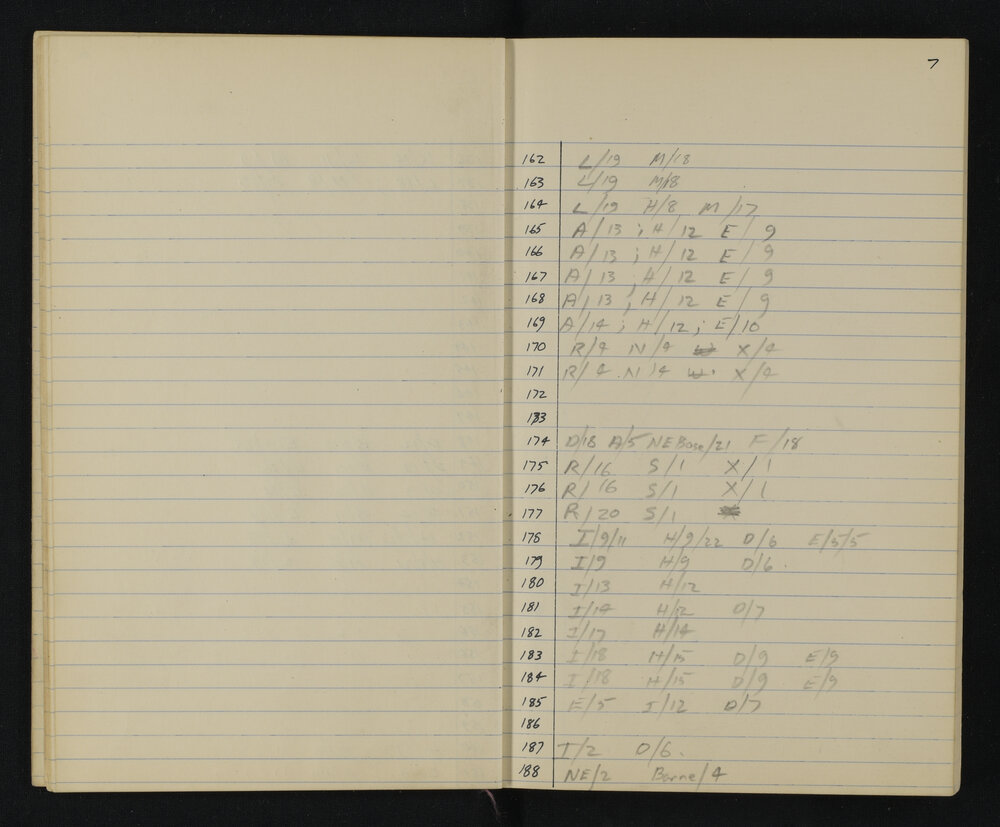 7
162 L/19 M/18
163 L/19 M/18
164 L/19 H/8 M/17
165 A/13 ; H/12 E/9
166 A/13 ; H/12 E/9
167 A/13 ; H/12 E/9
168 A/13 ; H/12 E/9
169 A/14 ; H/12 ; E/10
170 R/4 N/4 X/4
171 R/4 N/4 X/4
172
173
174 D/18 A/5 NE Base/21 F/18
175 R/16 S/1 X/1
176 R/16 S/1 X/1
177 R/20 S/1
178 I/9/11 H/9/22 D/6 E/5/5
179 I/9 H/9 D/6.
180 I/13 H/12
181 I/14 H/12 D/7
182 I/17 H/14
183 I/18 H/15 D/9 E/9
184 I/18 H/15 D/9 E/9
185 E/5 I/12 D/7
186
187 I/2 D/6.
188 NE/2 /4